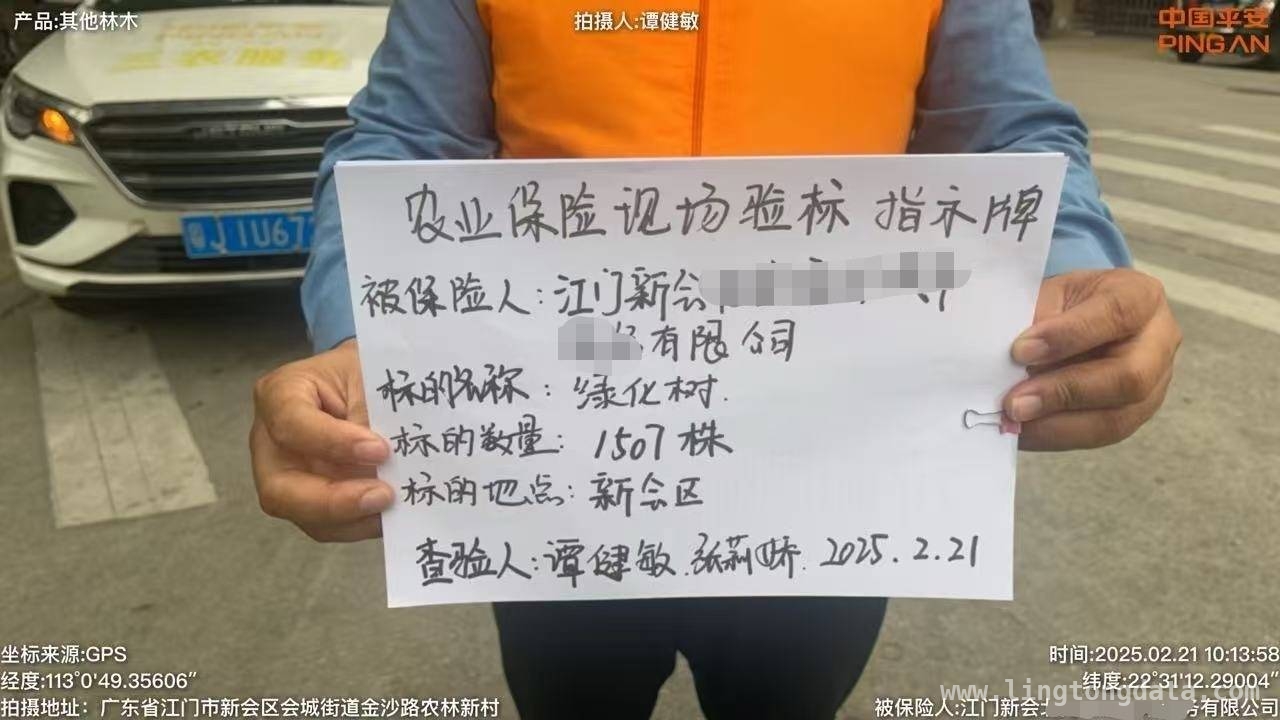 产品:其他林木
拍摄人:谭健敏
中国平安
PING AN
粤J1U67
农业保险现场验标 指示牌
被保险人:江门新会
有限公司
标的名称:绿化树.
标的数量:1507株
标的地点:新会区
查验人:谭健敏.张莉娇.2025.2.21
坐标来源:GPS
经度:113°0′49.35606″
拍摄地址:广东省江门市新会区会城街道金沙路农林新村
时间:2025.02.21 10:13:58
纬度:22°31′12.29004″
www.lingtongdata.com
被保险人:江门新会
务有限公司